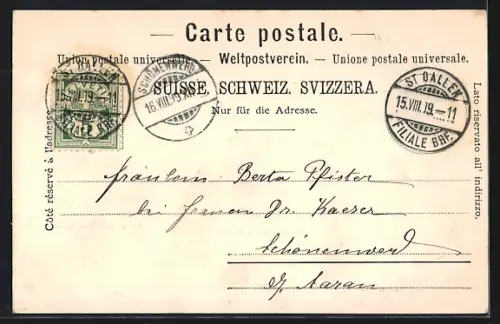 Carte postale.
Union postale universelle. — Weltpostverein. — Unione postale universale.
SUISSE. SCHWEIZ. SVIZZERA.
Nur für die Adresse.
Côté réservé à l'adresse.
Lato riservato all' indirizzo.
HELVETIA
15.VIII.19
FILIALE BRF.
SCHÖNENWERD
16.VIII.19
ST GALLEN
15.VIII.19.–11
FILIALE BRF.
Fräulein Berta Pfister
bei Frauen Dr. Kaeser
Schönenwerd
b/ Aarau